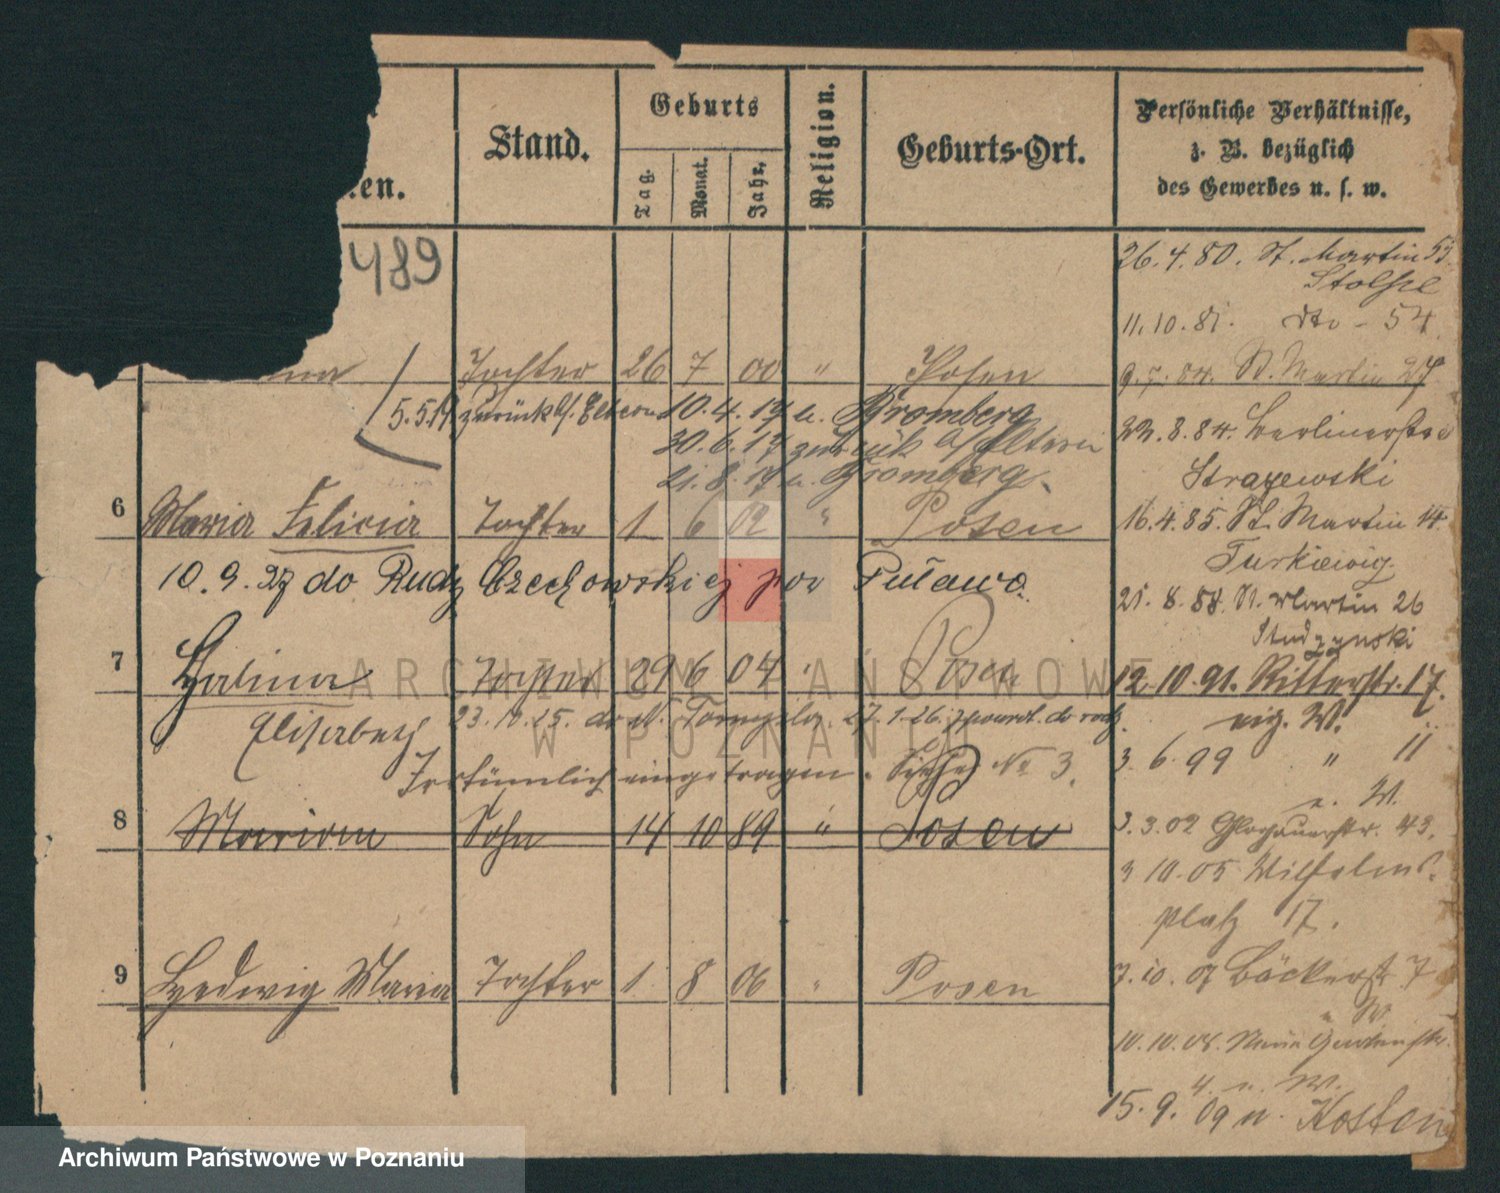 Stand.
Geburts
Tag.
Monat.
Jahr.
Religion.
Geburts-Ort.
Persönliche Verhältnisse,
z. B. bezüglich
des Gewerbes u. s. w.
en.
489
Tochter 26 7 00 " Posen
5.5.19. zurück bs. Eltern 10.4.17 n. Bromberg
30.6.17 zurück bs. Eltern
21.8.17 n. Bromberg.
6 Maria Felicia Tochter 1 6 02 " Posen
10.9.27 do Rudy Czechowskiej pow Puławo.
7 Halina Tochter 29 6 04 " Posen
Elisabeth 23.10.25. do N. Tomyśla. 27.1.26. powrót. do rodz.
Irrtümlich eingetragen. Siehe No 3.
8 Marian Sohn 14 10 89 " Posen
9 Hedwig Maria Tochter 1 8 06 " Posen
26.4.80. St. Martin 55
11.10.81. dto - 54
9.7.84. St. Martin 27
22.8.84. Berlinerstr
Strazewski
16.4.85. St. Martin 14.
Turkiewicz
21.8.88. St. Martin 26
Studzynski
12.10.91. Ritterstr. 17.
eig. W.
3.6.99 " 11
e. W.
3.3.02 Glogauerstr. 43.
3 10.05 Wilhelms-
platz 17.
7.10.07 Bäckerstr 7
e W
10.10.08. Neue Gartenstr.
4 e. W.
15.9.09 n. Kosten
ARCHIWUM PAŃSTWOWE
W POZNANIU
Archiwum Państwowe w Poznaniu